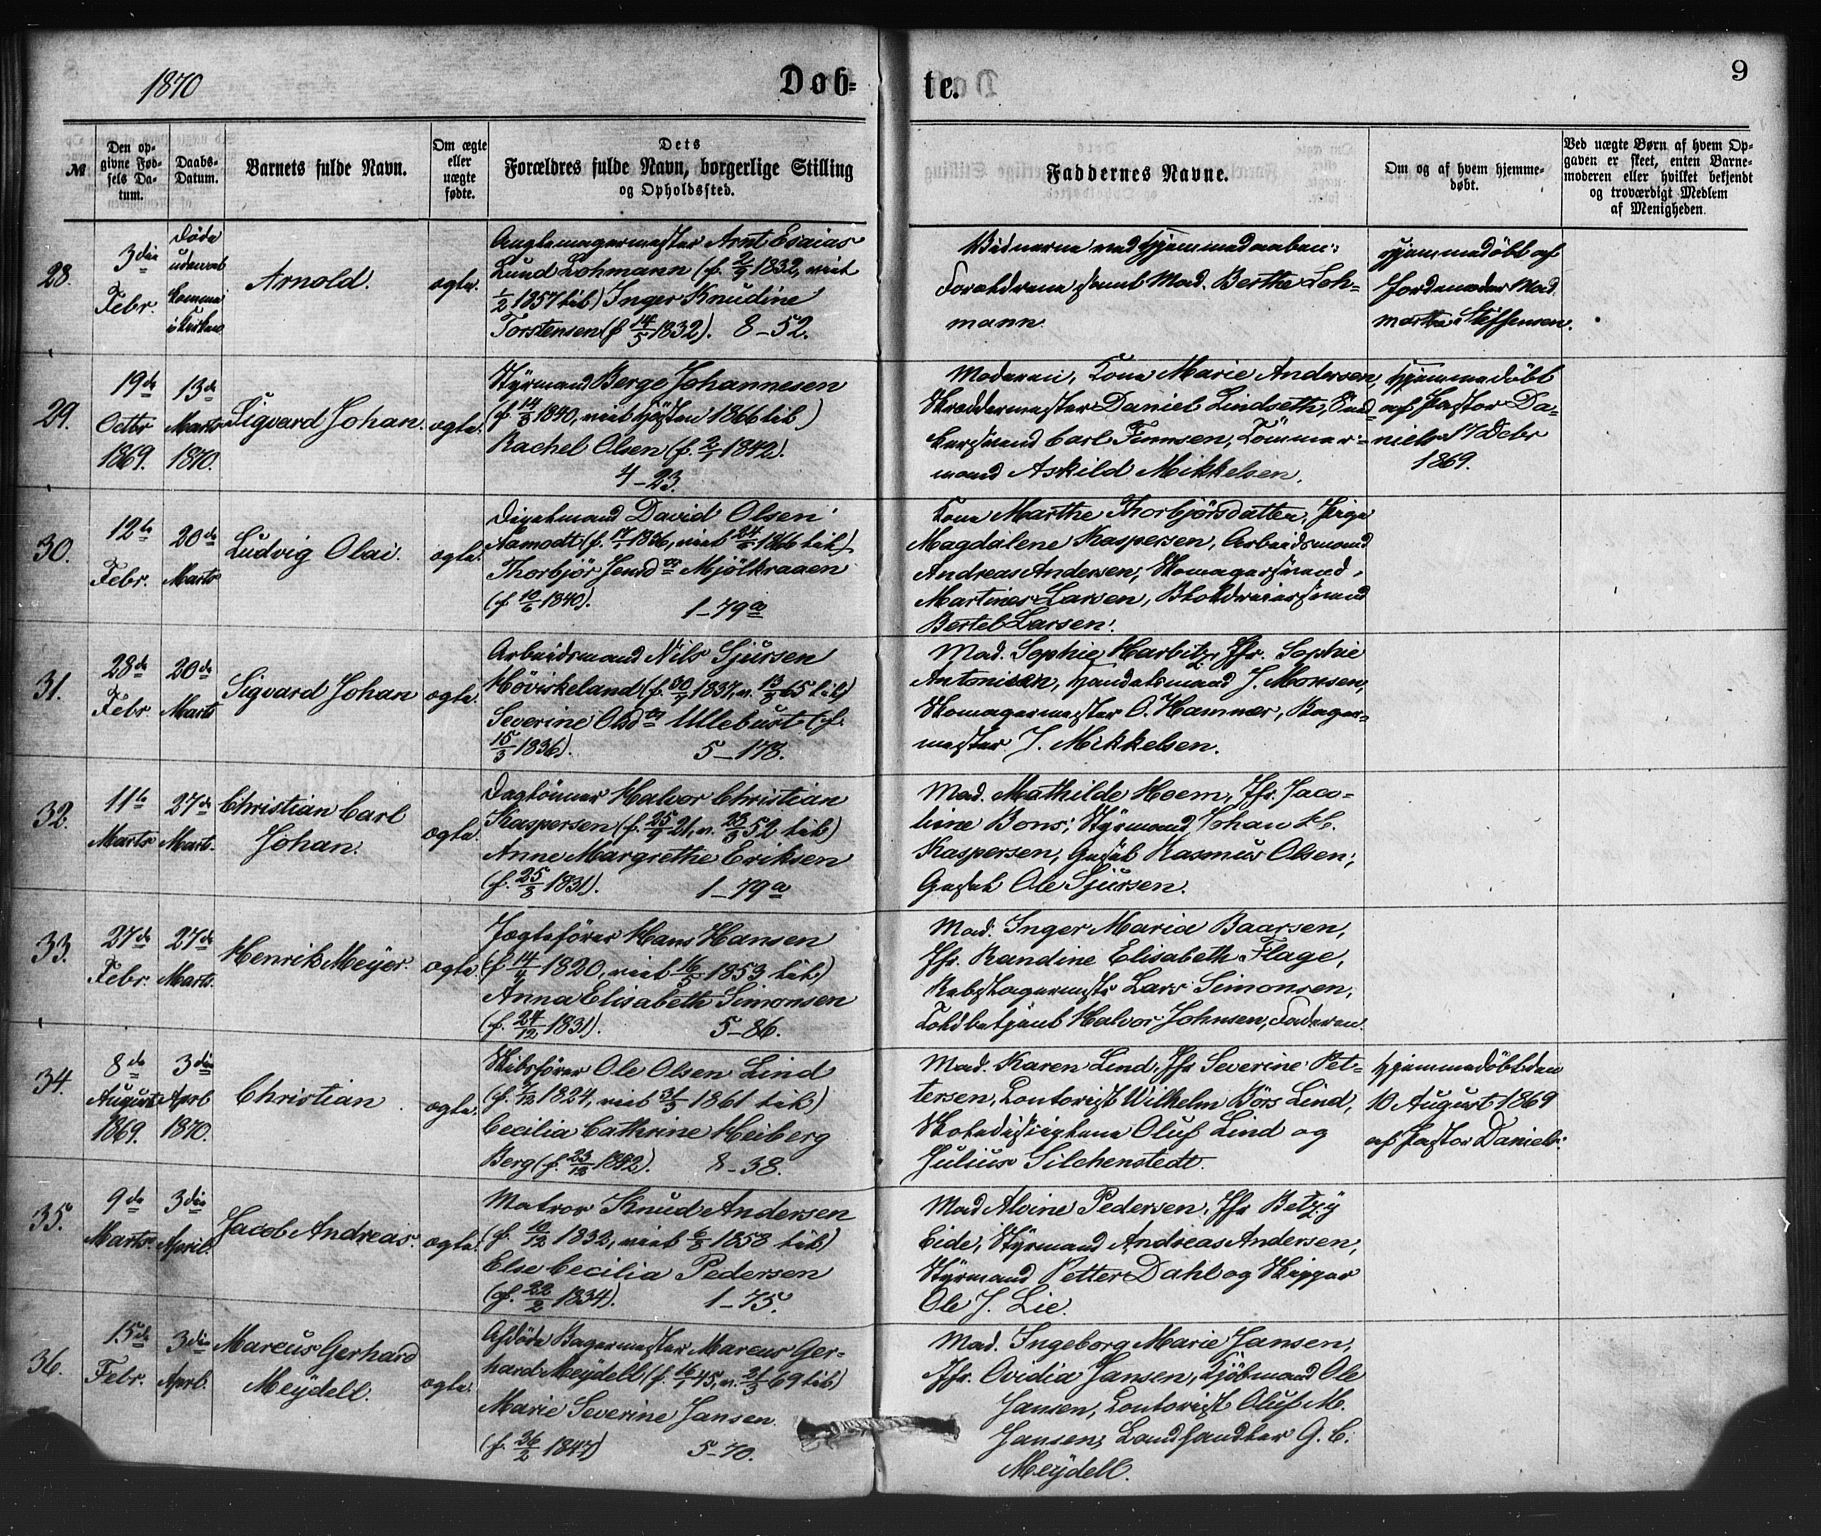 1870
Döb-
te.
9
№
Den op-
givne Fød-
sels Da-
tum.
Daabs-
Datum.
Barnets fulde Navn.
Om ægte
eller
uægte
fødte.
Dets
Forældres fulde Navn, borgerlige Stilling
og Opholdssted.
Faddernes Navne.
Om og af hvem hjemme-
døbt.
Ved uægte Børn af hvem Op-
gaven er skeet, enten Barne-
moderen eller hvilket bekjendt
og troværdigt Medlem
af Menigheden.
28.
3die
Febr.
Döde
udenat
komme
i Kirken
Arnold.
ægte.
Arnt Esaias
Lund Lohmann (f. 2/9 1832, viet
1/2 1857 til) Inger Knudine
Torstensen (f 14/5 1832). 8–52.
Vidnerne ved Hjemmedaaben:
Forældrene samt Mad. Berthe Loh-
mann.
Hjemmedöbt af
Jordemoder Mad.
Martha Steffensen.
29.
19de
Octbr
1869.
13de
Marts
1870.
Sigvard Johan.
ægte.
Styrmand Berge Johannesen
(f. 14/3 1840, viet Hösten 1866 til)
Rachel Olsen (f. 2/7 1842).
4–23.
Moderen, Kone Marie Andersen,
Skræddermester Daniel Lindseth,
Carl Finnsen, Tömmer-
mand Askild Mikkelsen.
Hjemmedöbt
af Pastor Da-
niels 17 Debr
1869.
30.
12te
Febr.
20de
Marts
Ludvig Olai.
ægte.
David Olsen
Aamodt (f. 17/7 1836, viet 24/6 1866 til)
Thorbjör Jensdr Mjölkraaen
(f. 10/5 1840). 1–79a
Kone Marthe Thorbjörsdatter, Pige
Magdalene Kaspersen, Arbeidsmand
Andreas Andersen, Skomagersvend
Martines Larsen,
Bertel Larsen.
31.
28de
Febr.
20de
Marts
Sigvard Johan
ægte.
Arbeidsmand Nils Sjursen
Hövirkeland (f. 30/7 1837, v. 13/8 65 til)
Severine Olsdtr Ulleburst (f.
15/3 1836). 5–178.
Mad. Sophie Harbitz, Jfr. Sophie
Antonisen, Handelsmand J. Monsen,
Skomagermester O. Hammer, Bager-
mester J. Mikkelsen.
32.
11te
Marts
27de
Marts.
Christian Carl
Johan.
ægte.
Daglönner Halvor Christian
Kaspersen (f. 25/9 21, v. 23/5 52 til)
Anne Margrethe Eriksen
(f. 25/8 1831). 1–79a
Mad. Mathilde Hoem, Jfr. Jaco-
bine Bons, Styrmand Johan
Kaspersen, Gesel Rasmus Olsen,
Gesel Ole Sjursen.
33.
27de
Febr.
27de
Marts.
Henrik Meyer.
ægte.
Jægtefører Hans Hansen
(f 14/4 1820, viet 16/5 1853 til)
Anna Elisabeth Simonsen
(f. 24/12 1831). 5–86.
Mad. Inger Maria Baarsen,
Jfr. Randine Elisabeth Flage,
Rebslagermester Lars Simonsen,
Toldbetjent Halvor Johnsen, Faderen.
34.
8de
August
1869.
3die
April
1870.
Christian
ægte.
Skibsfører Ole Olsen Lind
(f. 7/12 1824, viet 31/3 1861 til)
Cecilia Cathrine Heiberg
Berg (f. 23/12 1842). 8–38.
Mad. Karen Lind, Jfr Severine Pet-
tersen, Contorist Wilhelm Börs Lind,
Skoledisciplene Oluf Lind og
Julius Silchenstedt.
Hjemmedöbt den
10 August 1869
af Pastor Daniels.
35.
9de
Marts.
3die
April.
Jacob Andreas.
ægte.
Matros Knud Andersen
(f. 10/12 1832, viet 6/8 1858 til)
Else Cecilia Pedersen
(f. 22/2 1834). 1–75.
Mad Alvine Pedersen, Jfr Betzy
Eide, Styrmand Andreas Andersen,
Styrmand Petter Dahl og Skipper
Ole J. Lie.
36.
15de
Febr.
3die
April.
Marcus Gerhard
Meydell.
ægte.
Afdöde Bagermester Marcus Ger-
hard Meydell (f. 16/1 45, v. 21/3 69 til)
Marie Severine Jansen
(f. 26/2 1847) 5–70.
Mad. Ingeborg Marie Jansen,
Jfr. Ovidia Jansen, Kjöbmand Ole
Jansen, Contorist Oluf M.
Jansen, Landhandler G. C.
Meydell.